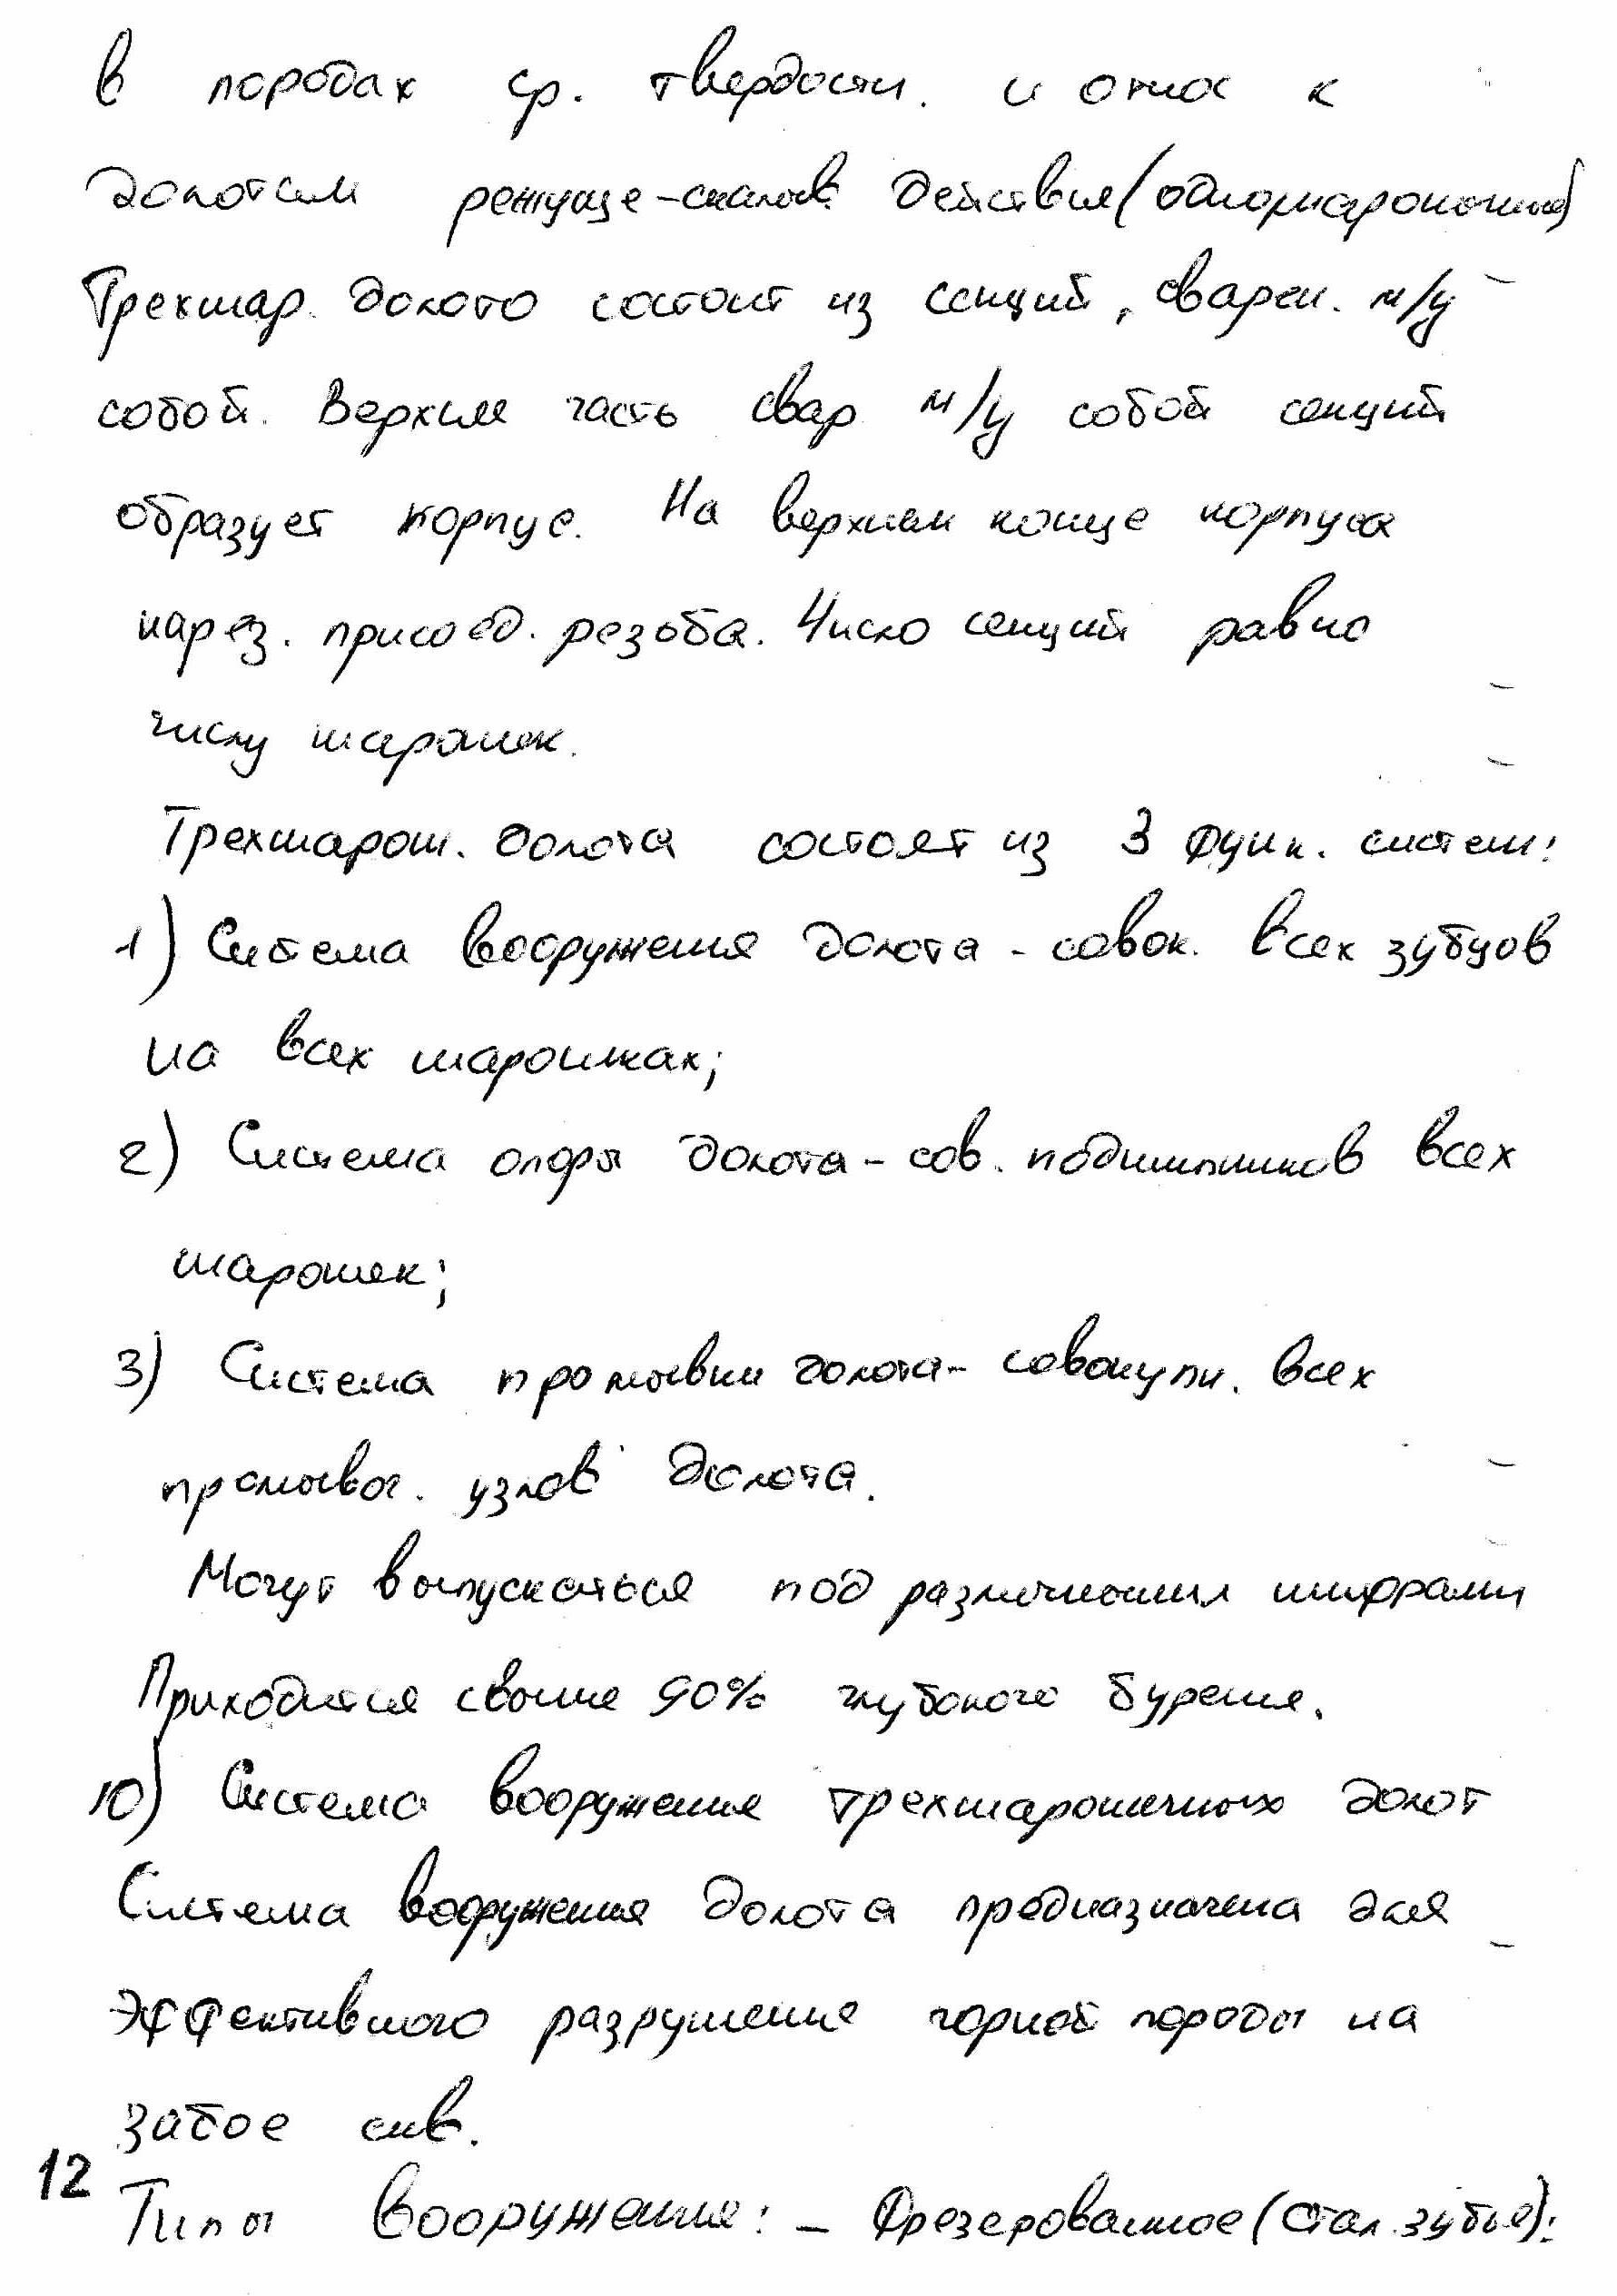 в породах ср. твердости. и относ к
долотам режуще-скалыв. действия (одношарошечные)
Трехшар. долото состоит из секций, сварен. м/у
собой. Верхняя часть свар м/у собой секций
образует корпус. На верхнем конце корпуса
нарез. присоед. резьба. Число секций равно
числу шарошек.
Трехшарош. долота состоят из 3 функ. систем:
1) Система вооружения долота - совок. всех зубцов
на всех шарошках;
2) Система опоры долота - сов. подшипников всех
шарошек;
3) Система промывки долота - совокупн. всех
промывоч. узлов долота.
Могут выпускаться под различными шифрами
Приходится свыше 90% глубокого бурения.
10) Система вооружения трехшарошечных долот
Система вооружения долота предназначена для
эффективного разрушения горной породы на
забое скв.
12
Типы вооружения: - Фрезерованное (стал. зубья):